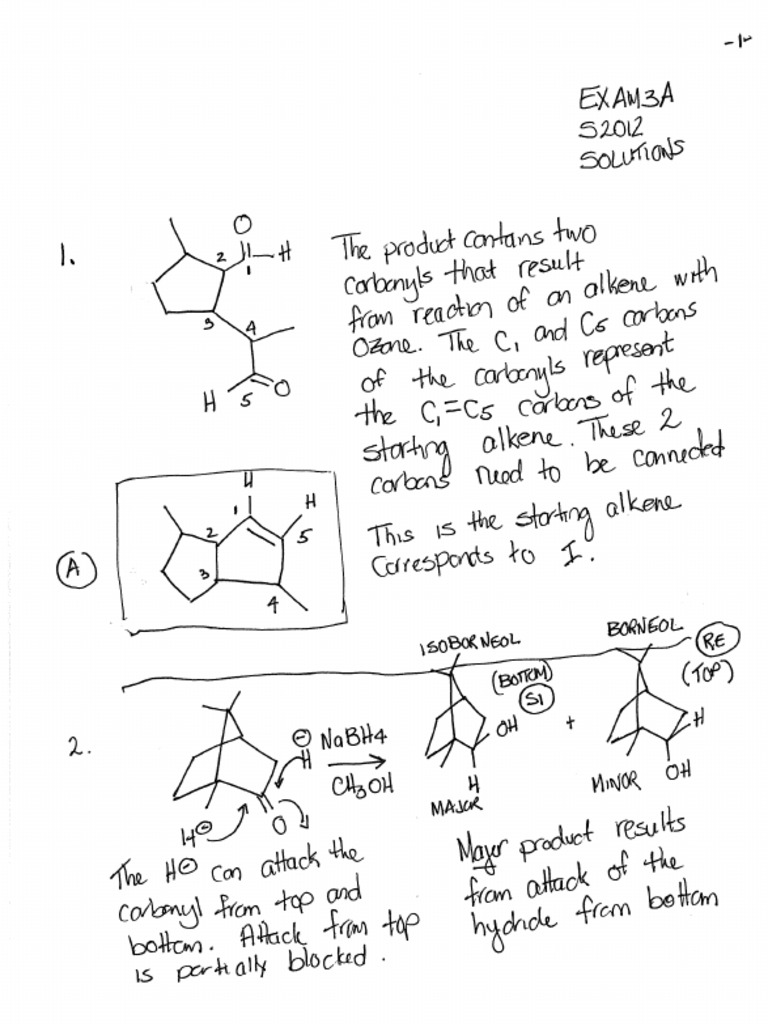 -1-
EXAM3A
S2012
SOLUTIONS
1.
O
2
H
1
3
4
H 5 O
The product contans two
carbonyls that result
from reaction of an alkene with
Ozone. The C1 and C5 carbons
of the carbonyls represent
the C1=C5 carbons of the
starting alkene. These 2
carbons need to be connected
This is the starting alkene
Corresponds to I.
A
H
1
H
2
5
3
4
2.
ISOBORNEOL
(BOTTOM)
SI
BORNEOL
RE
(TOP)
⊖
H
NaBH4
CH3OH
OH
+
H
H
MAJOR
MINOR
OH
H⊖
O
The H⊖ can attack the
carbonyl from top and
bottom. Attack from top
is partially blocked.
Major product results
from attack of the
hydride from bottom